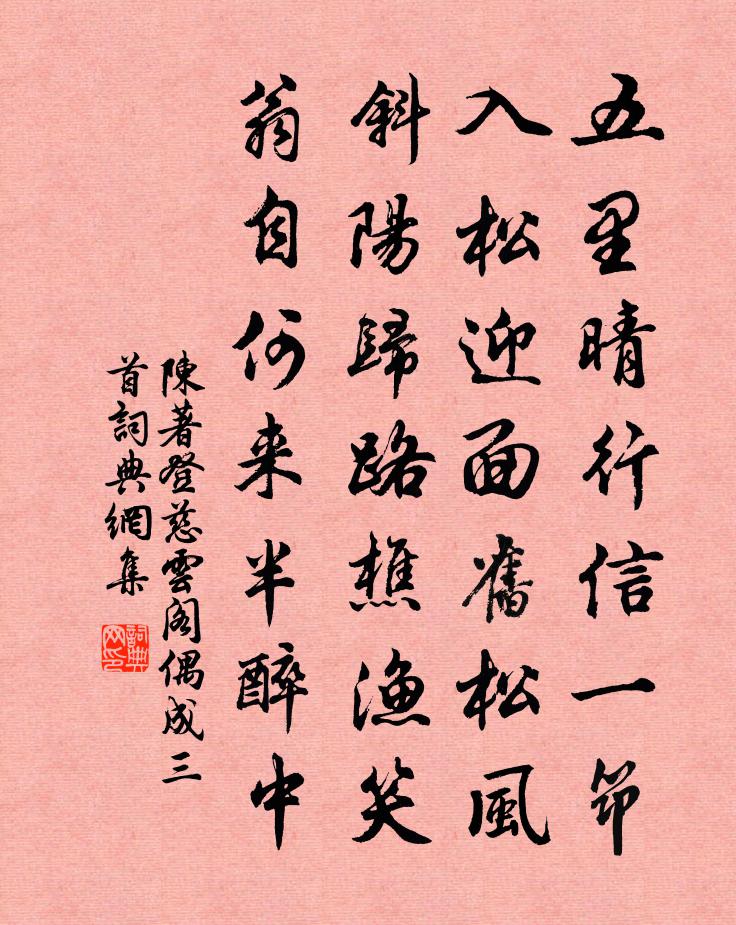 五里晴行信一笻
入松迎面舊松風
斜陽歸路樵漁笑
翁自何来半醉中
陳著登慈雲閣偶成三
首詞典網集
詞典
网印